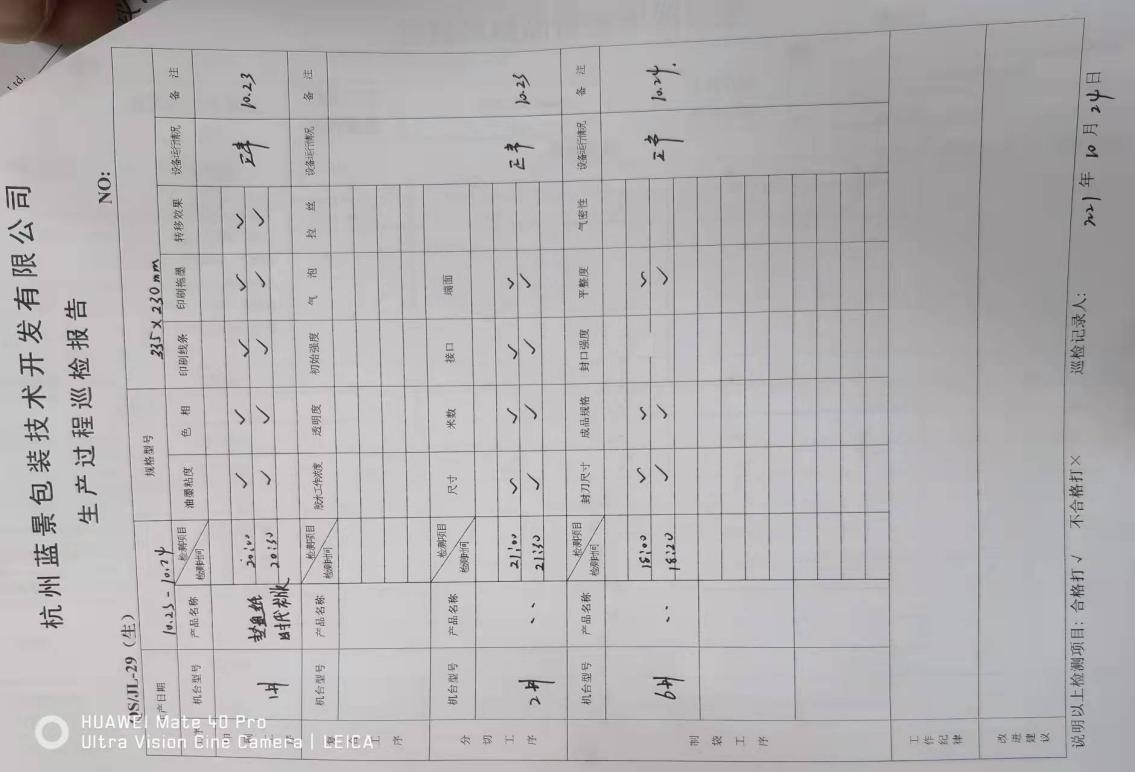 杭州蓝景包装技术开发有限公司
生产过程巡检报告
QS/JL-29（生） NO:
产日期 10.23-10.24 规格型号 335×230mm
机台型号 产品名称 检测项目 检测时间 油墨粘度 色相 印刷线条 印刷拖墨 转移效果 设备运行情况 备注
1# 20:00 ✓ ✓ ✓ ✓ ✓ 正常 10.23
20:30 ✓ ✓ ✓ ✓ ✓
机台型号 产品名称 检测项目 检测时间 胶水工作浓度 透明度 初始强度 气泡 拉丝 设备运行情况 备注
分切工序 机台型号 产品名称 检测项目 检测时间 尺寸 米数 接口 端面 设备运行情况 备注
2# 21:00 ✓ ✓ ✓ ✓ 正常 10.23
21:30 ✓ ✓ ✓ ✓
制袋工序 机台型号 产品名称 检测项目 检测时间 封刀尺寸 成品规格 封口强度 平整度 气密性 设备运行情况 备注
6# 18:00 ✓ ✓ — ✓ 正常 10.24.
18:20 ✓ ✓ — ✓
工作纪律
改进建议
说明以上检测项目：合格打√ 不合格打× 巡检记录人： 2021年10月24日
HUAWEI Mate 40 Pro
Ultra Vision Cine Camera | LEICA
Ltd.